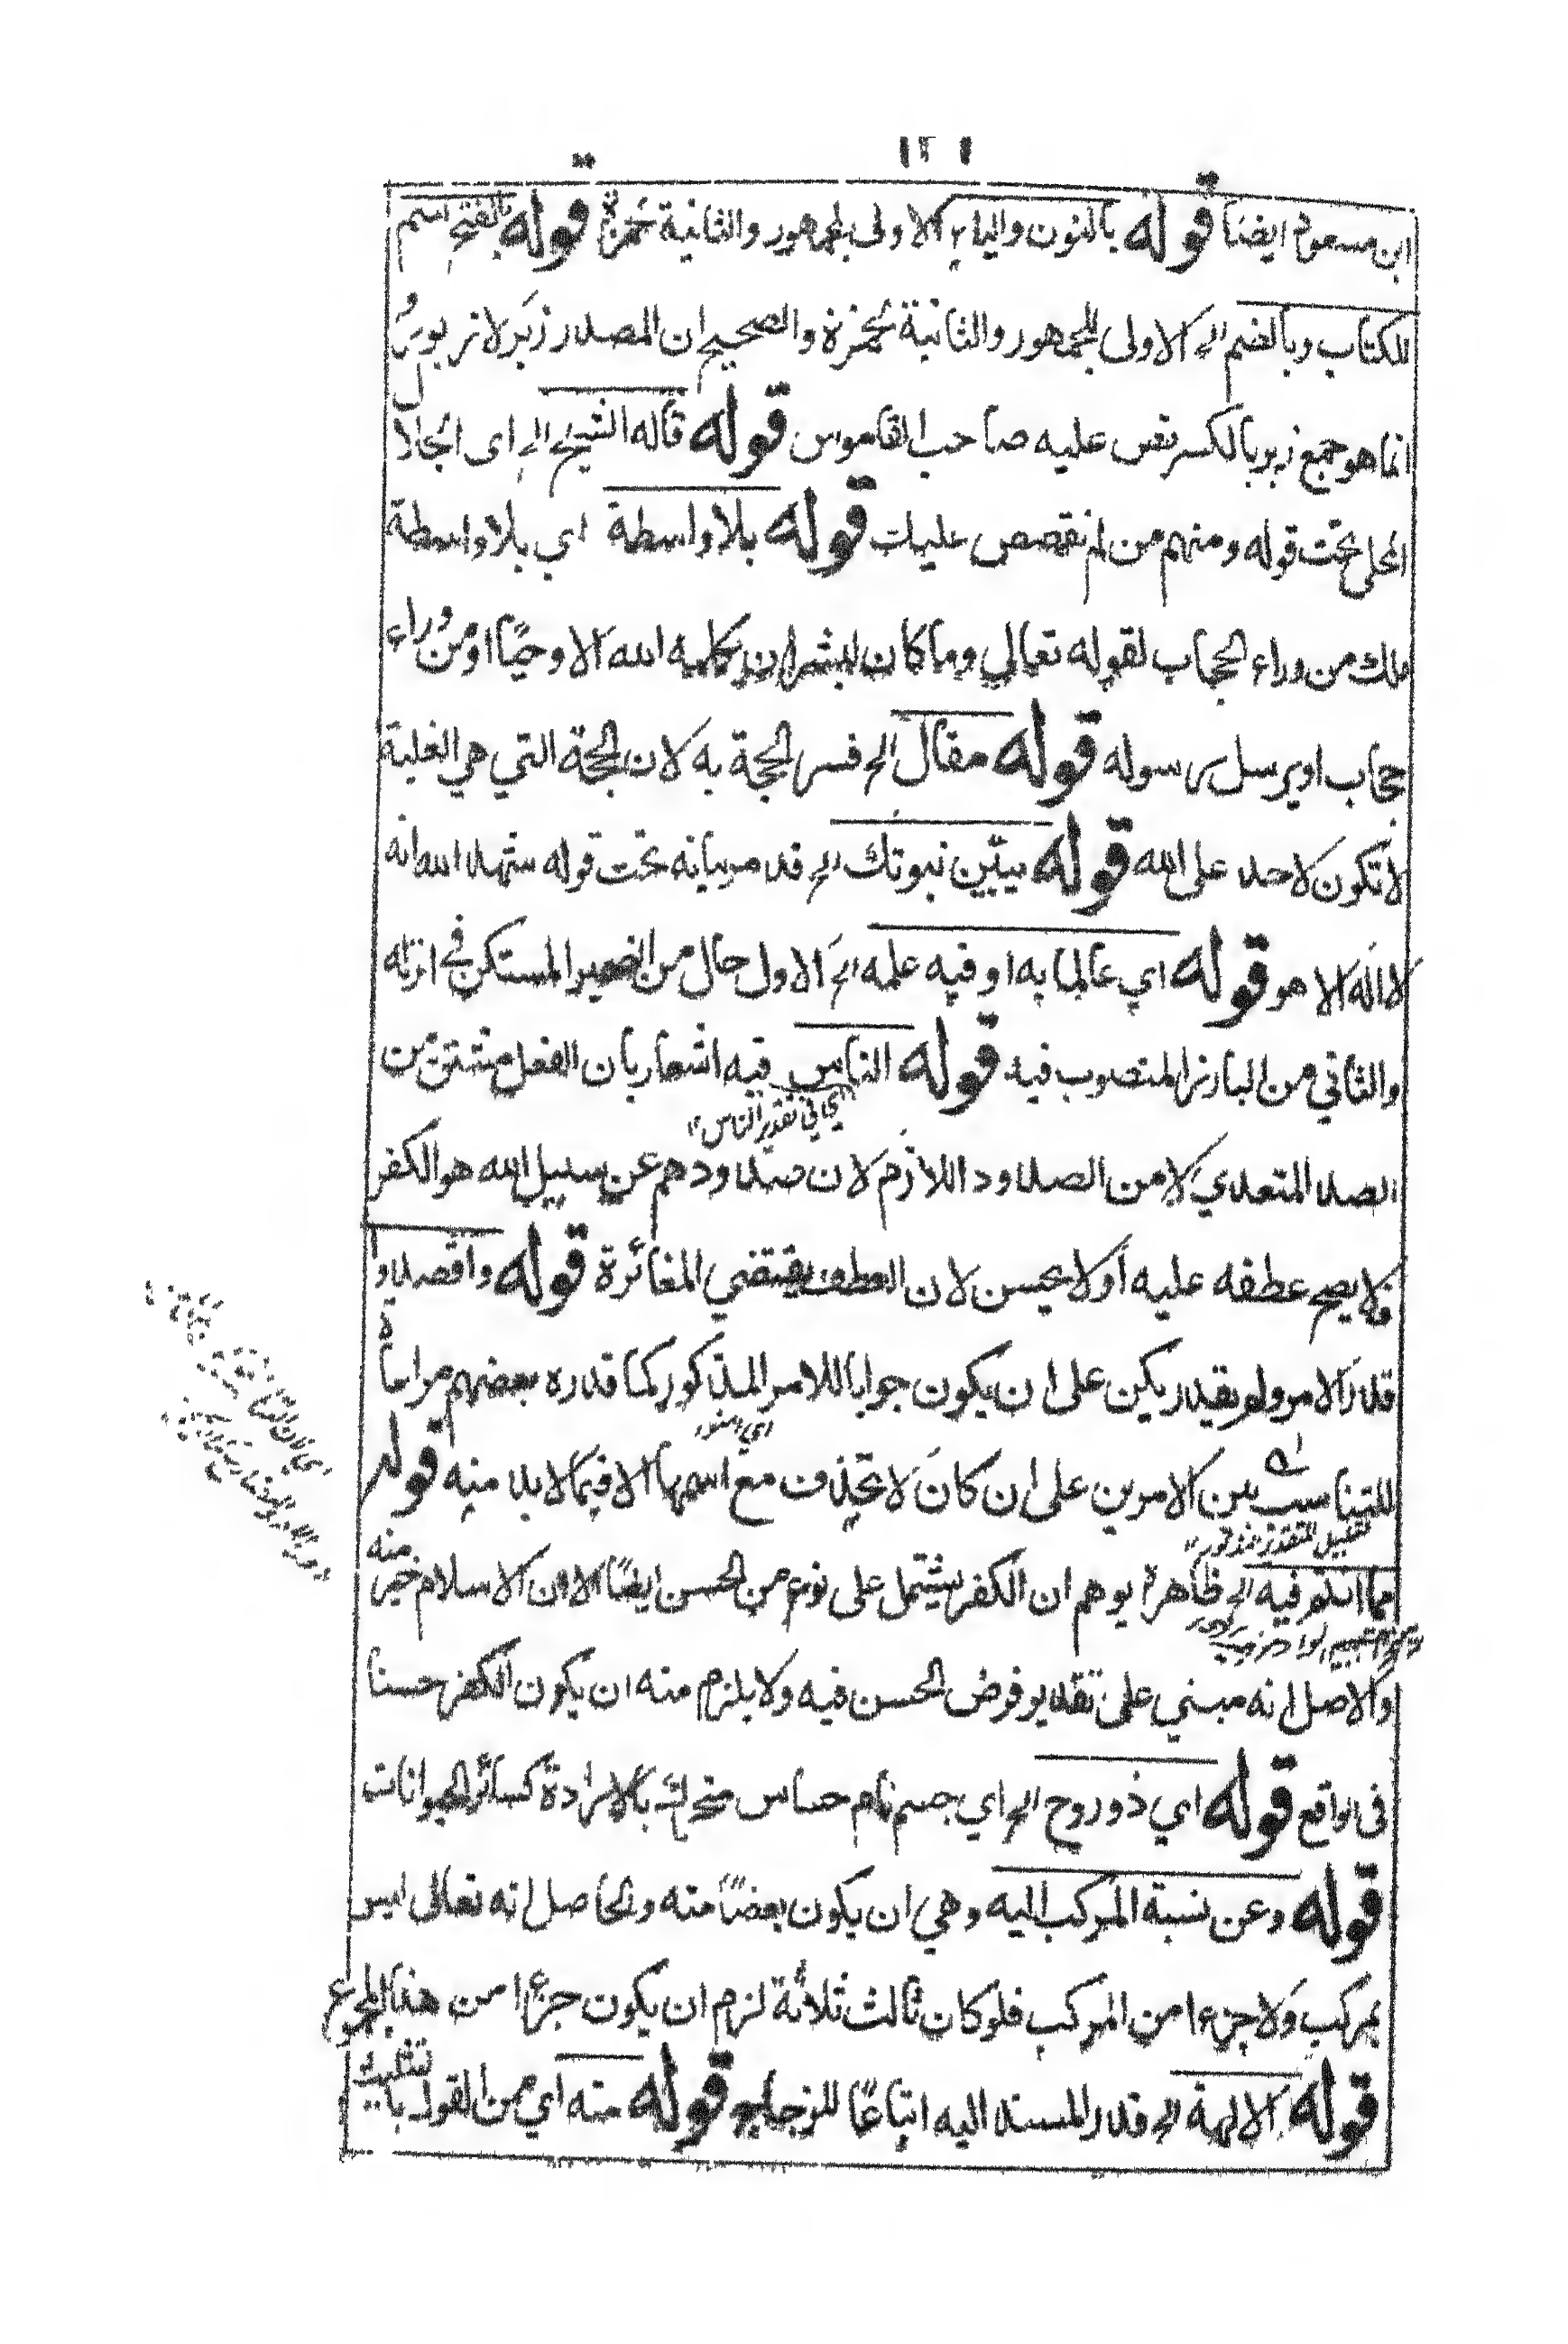 ١٢١
ابن مسعود ايضا قوله بالنون والياء الاولى للجمهور والثانية لحمزة قوله بالفتح اسم
للكتاب وبالضم الخ الاولى للجمهور والثانية لحمزة والصحيح ان المصدر زبر لا زبور
انما هو جمع زبر بالكسر نص عليه صاحب القاموس قوله قاله الشيخ الخ اى الجلال
المحلى تحت قوله ومنهم من لم نقصص عليك قوله بلا واسطة اي بلا واسطة
ملك من وراء الحجاب لقوله تعالي وما كان لبشر ان يكلمه الله الا وحيًا او من وراء
حجاب او يرسل رسوله قوله مقال الخ فسر الحجة به لان الحجة التي هي الغلبة
لا تكون لاحد على الله قوله يبيّن نبوتك الخ قد مر بيانه تحت قوله شهد الله انه
لا اله الا هو قوله اي عالما به او فيه علمه الخ الاول حال من الضمير المستكن في انزله
والثاني من البارز المنصوب فيه قوله الناس فيه اشعار بان الفعل مشتق من
اي في تقدير الناس
الصد المتعدي لا من الصدود اللازم لان صدودهم عن سبيل الله هو الكفر
فلا يصح عطفه عليه أو لا يحسن لان العطف يقتضي المغائرة قوله واقصدوا
قدر الامر ولم يقدر يكن على ان يكون جوابا للامر المذكور كما قدره بعضهم مراعاة
للتناسب بين الامرين على ان كان لا تحذف مع اسمها الا فيما لا بد منه قوله
مما انتم فيه الخ ظاهره يوهم ان الكفر يشتمل على نوع من الحسن ايضًا الا ان الاسلام خير منه
والاصل انه مبني على تقدير فرض الحسن فيه ولا يلزم منه ان يكون الكفر حسنا
فى الواقع قوله اي ذو روح الخ اي جسم نام حساس متحرك بالارادة كسائر الحيوانات
قوله وعن نسبة المركب اليه وهي ان يكون بعضًا منه والحاصل انه تعالى ليس
بمركب ولا جزءا من المركب فلو كان ثالث ثلاثة لزم ان يكون جزءا من هذا المجموع
قوله الالهة الخ قدر المسند اليه اتباعًا للزجاج قوله منه اي من القول بالتثليث